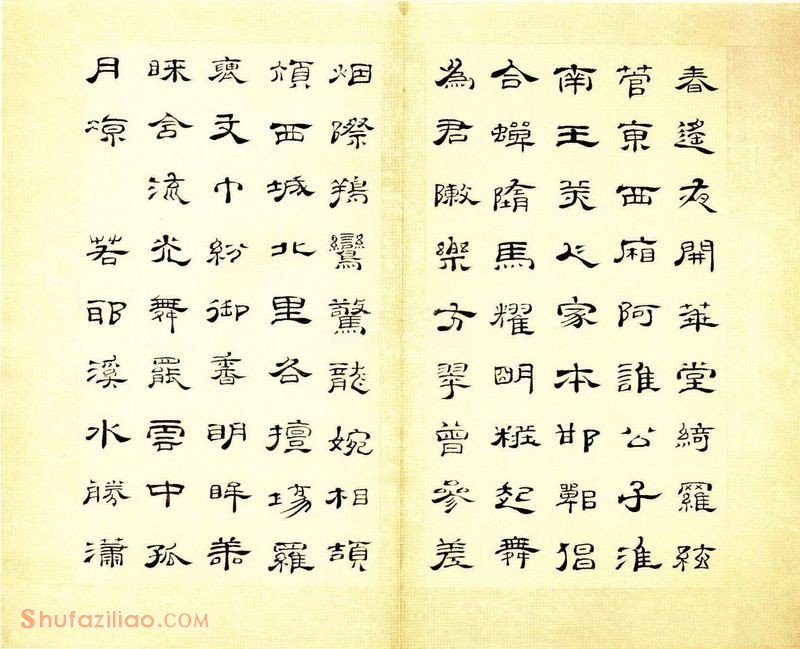 春遙夜開華堂綺羅絃
管東西廂阿誰公子淮
南王美人家本邯鄲倡
合蟬隋馬耀明糚起舞
為君敶樂方翠曾參差
烟際鸞驚龍婉相頡
頏西城北里各擅場羅
文巾紛御香明眸善
睞含流光舞罷雲中孤
月涼 若耶溪水勝瀟
Shufaziliao.COM